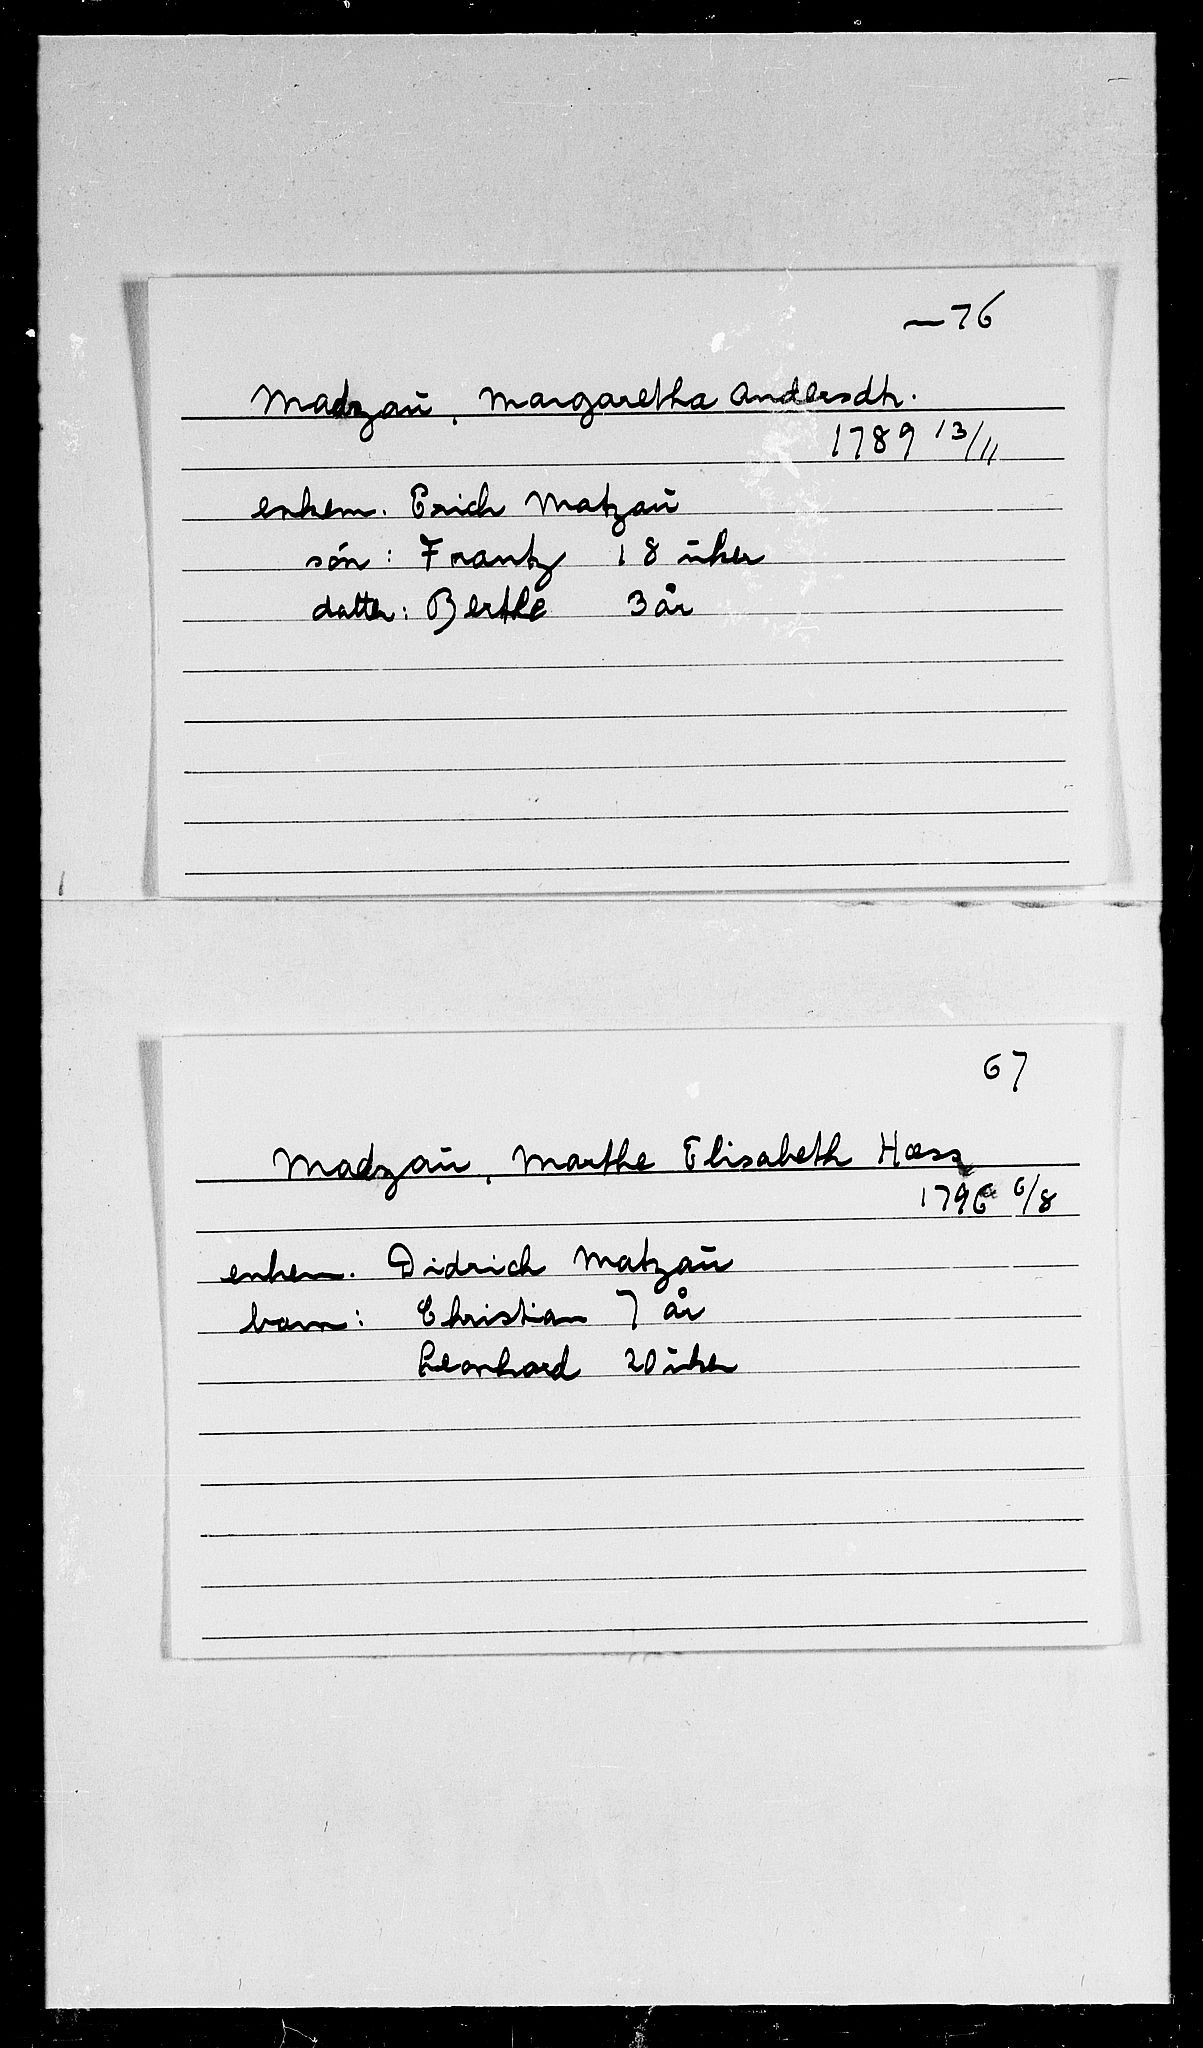 —76
Madzaü, Margaretha Andersdtr.
1789 13/11
enkem. Erich Matzaü
sön: Frantz 18 üker
datter: Berthe 3 år
67
Madzaü, Marthe Elisabeth Hæss
1796 6/8
enkem. Didrich Matzaü
barn: Christian 7 år
Leonhard 20 üker